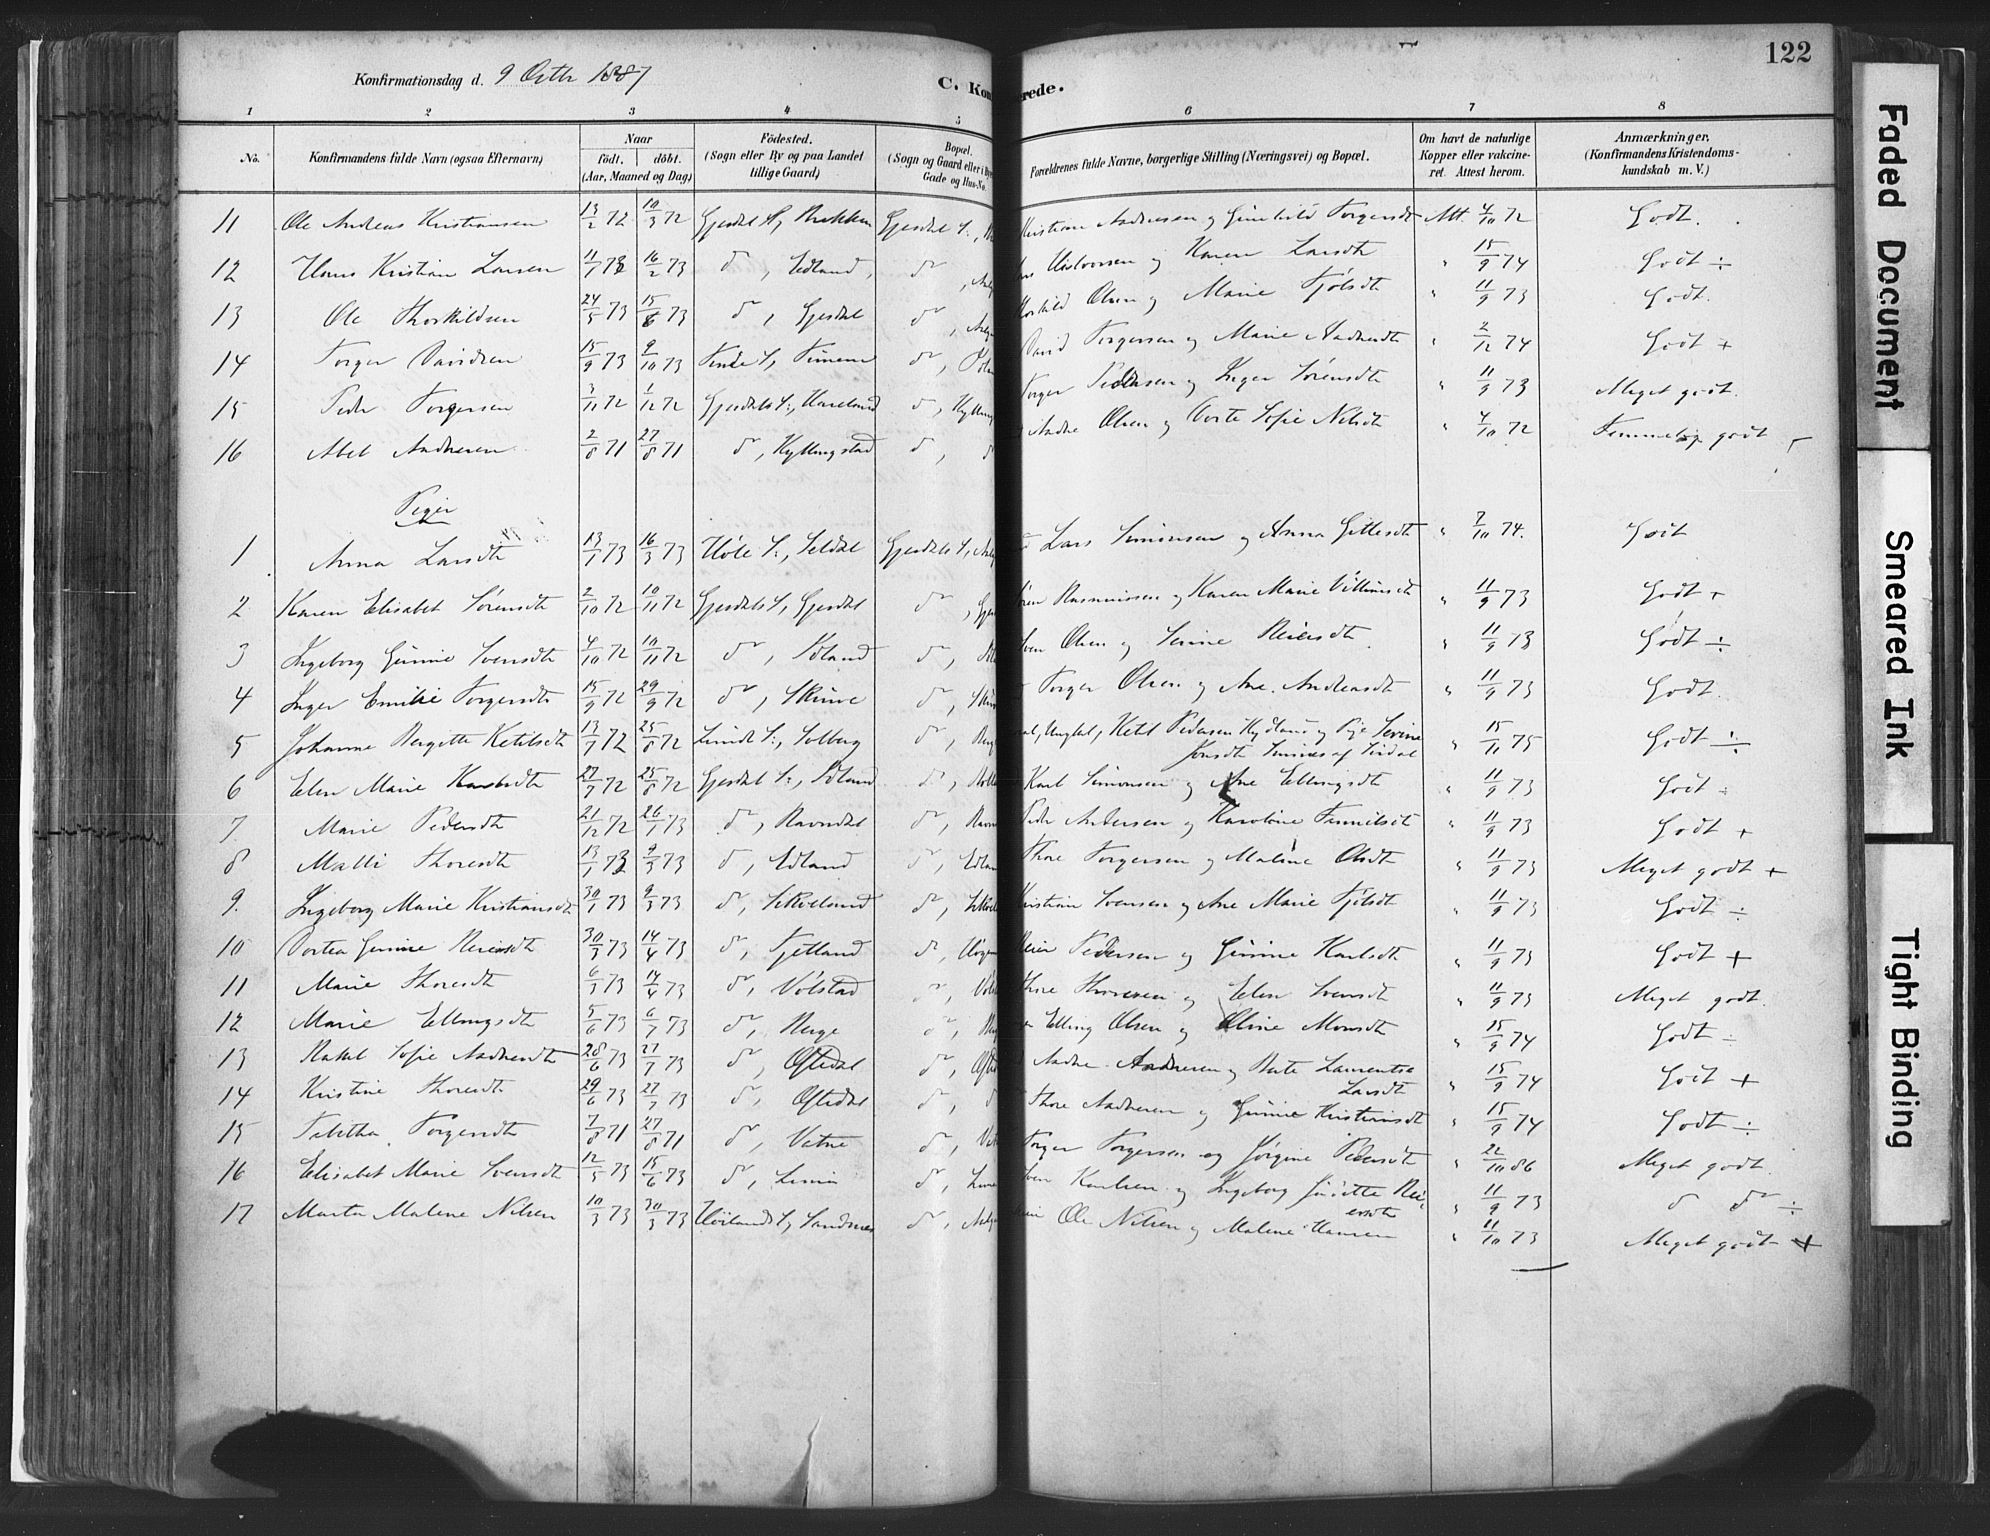 122
Konfirmationsdag d. 9 Octbr 1887
C. Kon erede.
1 2 3 4 5 6 7 8
No. Konfirmandens fulde Navn (ogsaa Efternavn) Naar födt. döbt. (Aar, Maaned og Dag) Födested. (Sogn eller By og paa Landet tillige Gaard) Bopæl. (Sogn og Gaard eller i By Gade og Hus-No. Forældrenes fulde Navne, borgerlige Stilling (Næringsvei) og Bopæl. Om havt de naturlige Kopper eller vakcineret. Attest herom. Anmærkninger. (Konfirmandens Kristendomskundskab m. V.)
11 Ole Andreas Kristiansen 13/2 72 10/3 72 Gjesdal S, Gjesdal S:, Kristian Andreasen og Gunhild Torgersdt Att. 4/10 72 Godt.
12 Hans Kristian Larsen 11/1 73 16/2 73 do, Edland, do og Karen Larsdt " 15/9 74 Godt ÷
13 Ole Thorkildsen 24/5 73 15/6 73 do, Gjesdal do Olsen og Marie Fjölsdt " 11/9 73 Godt.
14 Torger Davidsen 15/9 73 9/10 73 do, David Torgersen og Marie Andreasdt " 2/12 74 Godt +
15 Peder Torgersen 3/11 72 1/12 72 Gjesdals S:, Haveland do, Kylling Torger Pedersen og Inger Sörensdt " 11/9 73 Meget godt.
16 Abel Andreasen 2/8 71 27/8 71 do, Kyllingstad do, Olsen og Dorte Sofie Nilsdt " 4/10 72 Temmelig godt
Piger
1 Anna Larsdt 13/1 73 16/3 73 Höle S:, Seldal Gjesdals S, Lars Simonsen og Anna Gittlesdt " 7/10 74. Godt
2 Karen Elisabet Sörensdt 2/10 72 10/11 72 Gjesdals S, Gjesdal do, Gjes Sören Rasmussen og Karen Marie Villumsdt " 11/9 73 Godt +
3 Ingeborg Gunne Svensdt 4/10 72 10/11 72 do, do, Sven Olsen og Serine Reiersdt " 11/9 73 Godt ÷
4 Inger Emilie Torgersdt 15/9 72 29/9 72 do, Skurve do, Torger Olsen og Ane Andreasdt " 11/9 73 Godt.
5 Johanne Bergitte Ketilsdt 13/7 72 25/8 72 Lunde S:, Solberg do, Ungkal, Ketil Pedersen Kydland og Pige Serine Jonsdt Sinnes af Sirdal " 15/11 75 Godt ÷
6 Elen Marie Karlsdt 27/7 72 25/8 72 Gjesdal S:, do, Karl Simonsen og Ane Ellingsdt " 11/9 73 Godt ÷
7. Marie Pedersdt 21/12 72 26/1 73 do, Ravndal do, Ravn Peder Andersen og Karoline Tunnilsdt " 11/9 73 Godt +
8 Malli Thoresdt 13/1 73 9/3 73 do, Edland do, Edlan Thore Torgersen og Maline Olsdt " 11/9 73 Meget godt +
9. Ingeborg Marie Kristiansdt 30/1 73 9/3 73 do, do, Kristian Svensen og Ane Marie Fjölsdt " 11/9 73 Godt ÷
10 Dortea Gunne Reiersdt 30/3 73 14/4 73 do, Fjetland do, Reier Pedersen og Gunne Karlsdt " 11/9 73 Godt +
11 Marie Thoresdt 6/3 73 14/4 73 do, Völstad do, Völs Thore Thoresen og Elen Svensdt " 11/9 73 Meget godt.
12 Marie Ellingsdt 5/6 73 6/7 73 do, Berge do, Elling Olsen og Oline Monsdt " 15/9 74 Godt ÷
13 Rakel Sofie Andreasdt 28/6 73 27/7 73 do, Oftedal do, Ofted Andreasen og Berte Laurentse Larsdt " 15/9 74 Godt +
14 Kristine Thoresdt 29/6 73 27/7 73 do, Oftedal do, do Thore Andreasen og Gunne Kristiansdt " 15/9 74 Godt ÷
15 Tabitha Torgersdt 7/8 71 27/8 71 do, Vatne do, Torger Torgersen og Jörgine Pedersdt " 22/10 86 Meget godt.
16 Elisabet Marie Svensdt 12/5 73 15/6 73 do, Limu do, Sven Karlsen og Ingeborg Reiersdt " 11/9 73 do do ÷
17 Marta Malene Nilsen 10/3 73 30/3 73 Höilands S, Sandnes do, Ole Nilsen og Malene Hansen " 11/10 73 Meget godt +
Faded Document
Smeared Ink
Tight Binding